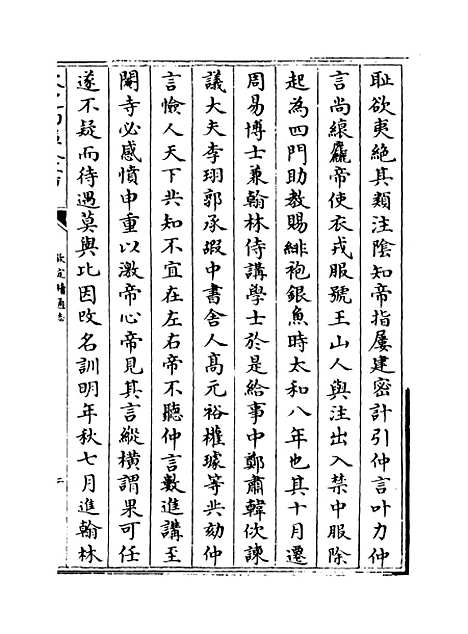 耻欲夷絶其類注隂知帝指屢建密計引仲言叶力仲
言尚縗麤帝使衣戎服號王山人與注出入禁中服除
起為四門助教賜緋袍銀魚時太和八年也其十月遷
周易博士兼翰林侍講學士於是給事中鄭肅韓佽諫
議大夫李珝郭承嘏中書舍人髙元裕權璩等共劾仲
言憸人天下共知不宜在左右帝不聽仲言數進講至
閹寺必感憤申重以激帝心帝見其言縱横謂果可任
遂不疑而待遇莫與比因改名訓明年秋七月進翰林
欽定續通志
二